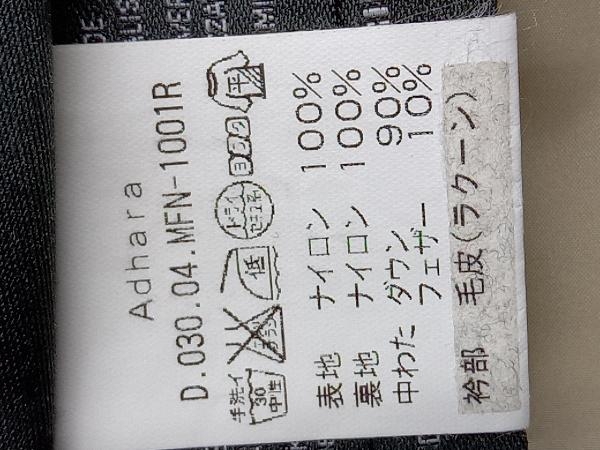 Adhara
D.030.04.MFN-1001R
手洗イ
30
中性
低
ドライ
セキユ系
表地 ナイロン 100%
裏地 ナイロン 100%
中わた ダウン 90%
フェザー 10%
衿部 毛皮(ラクーン)